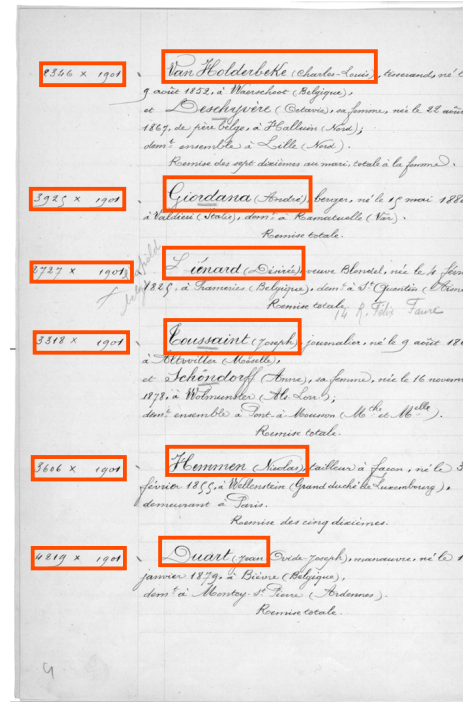 2346 X 1901 Van Holderbeke (Charles-Louis), tisserand, né l
9 août 1852, à Waerschoot (Belgique),
et Deschyvère (Octavie), sa femme, née le 22 août
1867, de père belge, à Halluin (Nord);
demt ensemble à Lille (Nord).
Remise des sept dixièmes au mari, totale à la femme.
3925 X 1901 Giordana (André), berger, né le 15 mai 188
à Valdieri (Italie), demt à Ramatuelle (Var).
Remise totale.
2727 X 1901 Liénard (Désirée), veuve Blondel, née le 4 févr
1825, à Frameries (Belgique), demt à St Quentin (Aisne
Remise totale.
14 R. Félix Faure
3318 X 1901 Toussaint (Joseph), journalier, né le 9 août 18
à (Moselle),
et Schöndorff (Anne), sa femme, née le 16 novem
1878, à Wolmunster (Als. Lorr.);
demt ensemble à Pont-à-Mousson (Mthe et Mselle).
Remise totale.
3606 X 1901 Hemmen (Nicolas), tailleur à façon, né le 3
février 1855, à Wellenstein (Grand duché de Luxembourg),
demeurant à Paris.
Remise des cinq dixièmes.
4219 X 1901 Duart (Jean Ovide-Joseph), manœuvre, né le 1
janvier 1879, à Bièvre (Belgique),
demt à Montcy-St Pierre (Ardennes).
Remise totale.